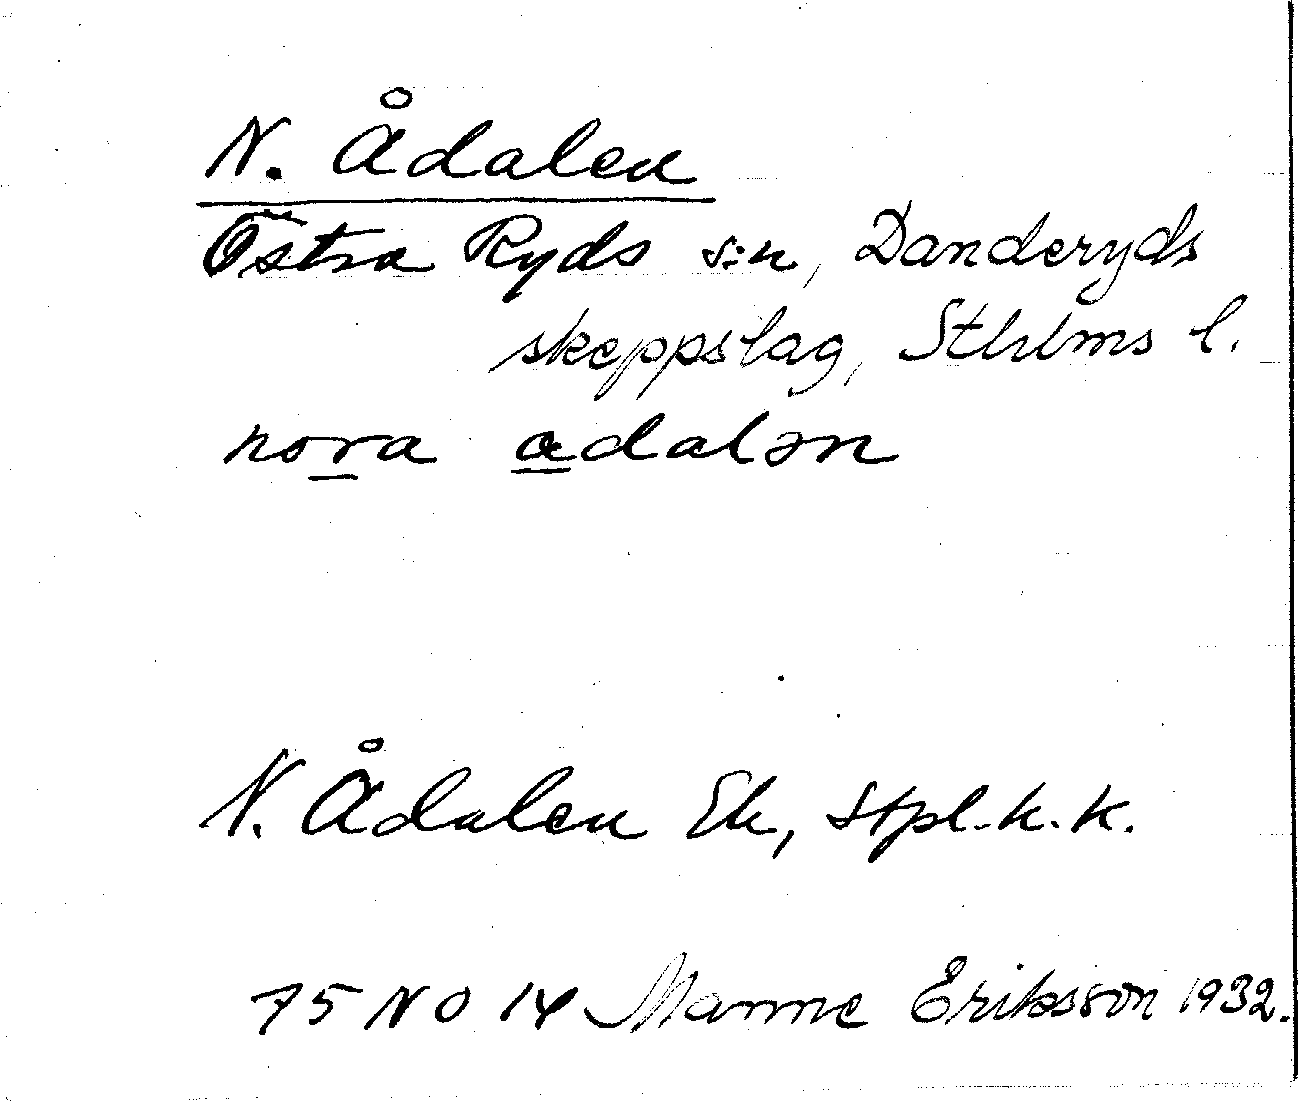 N. Ådalen
Östra Ryds s:n, Danderyds
skeppslag, Sthlms l.
nora adalən
N. Ådalen Ek, stpl.k.k.
75 NO 14 Manne Eriksson 1932.